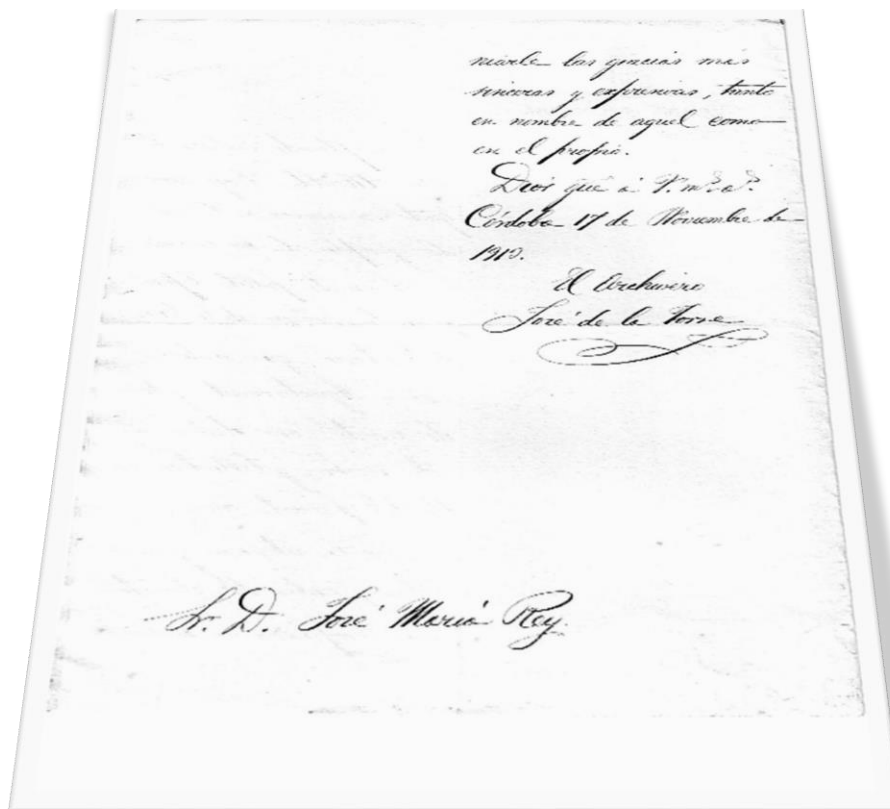 las gracias más
sinceras y expresivas, tanto
en nombre de aquel como
en el propio.
Dios gue á V. m. a.
Córdoba 17 de Noviembre de
1910.
El Archivero
José de la Torre
Sr. D. José María Rey.